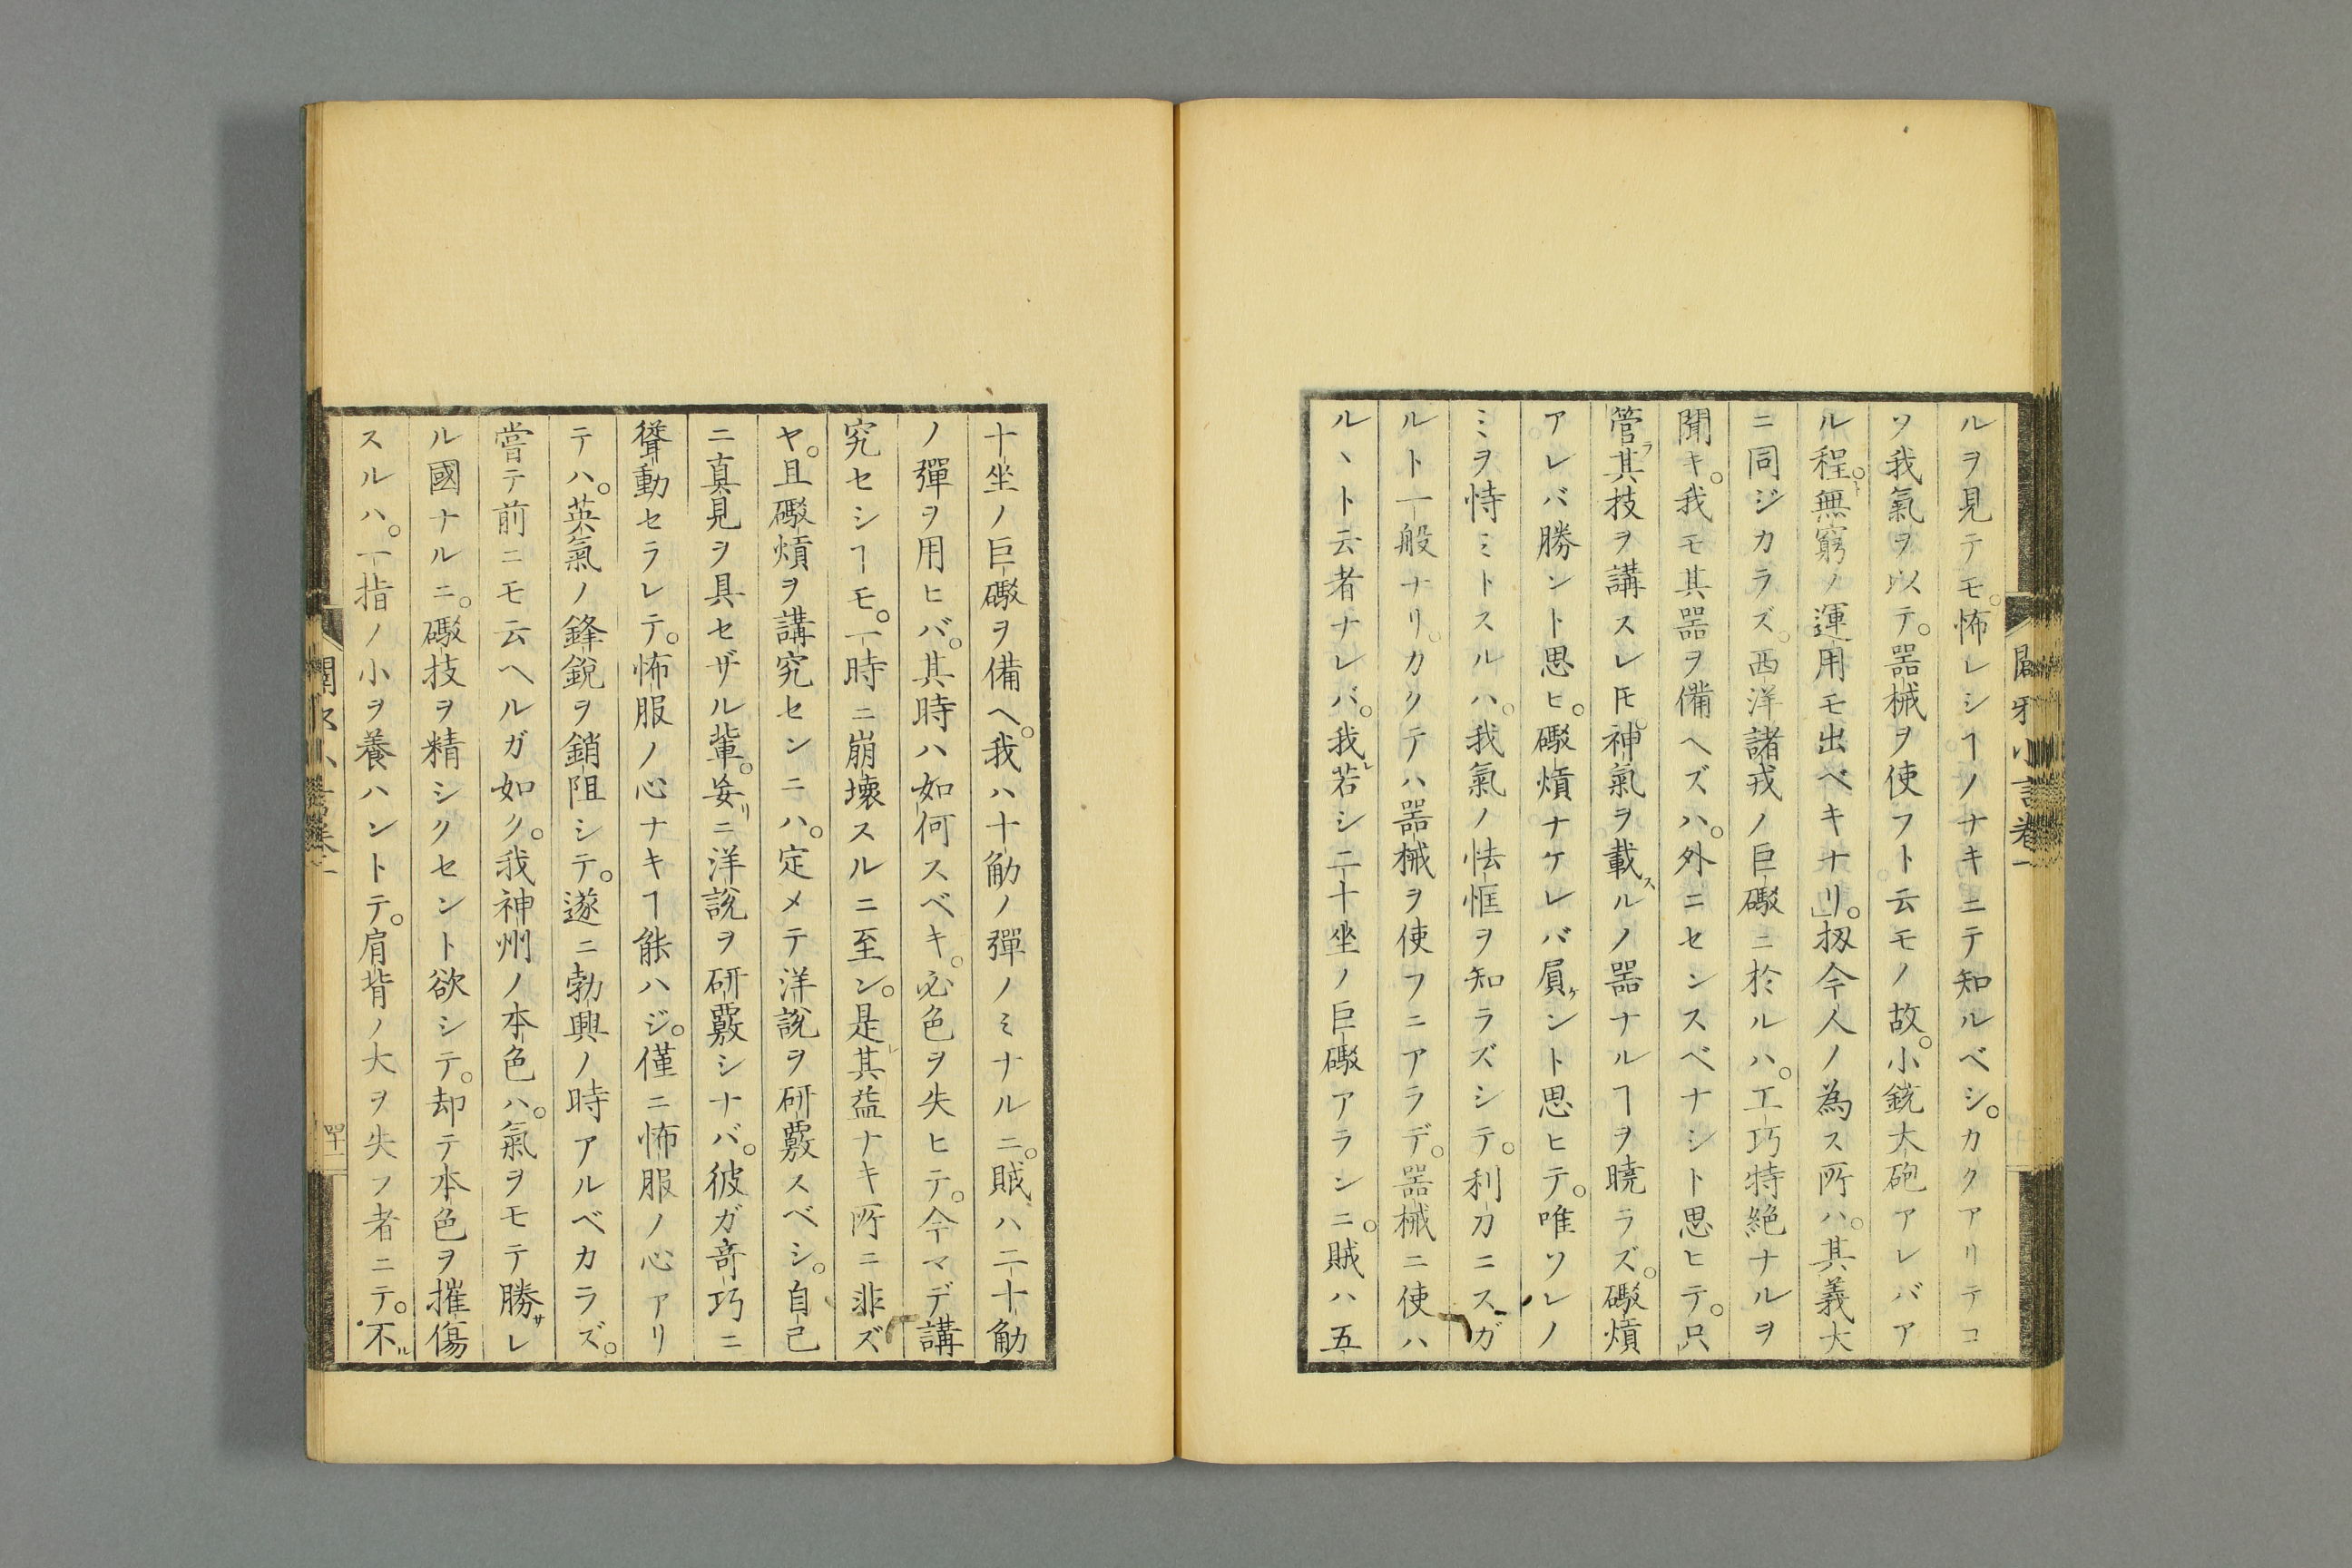 ルヲ見テモ。怖レシヿノナキニテ知ルベシ。カクアリテコ
ソ我氣ヲ以テ。器械ヲ使フト云モノ故。小銃大砲アレバア
ル程。無窮ノ運用モ出ベキナリ。」扨今人ノ為ス所ハ。其義大
ニ同ジカラズ。西洋諸戎ノ巨礮ニ於ルハ。工巧特絶ナルヲ
聞キ。我モ其器ヲ備ヘズハ。外ニセンスベナシト思ヒテ。只
管ラ其技ヲ講スレ𪜈。神氣ヲ載スルノ器ナルヿヲ曉ラズ。礮熕
アレバ勝ント思ヒ。礮熕ナケレバ屓ケント思ヒテ。唯ソレノ
ミヲ恃ミトスルハ。我氣ノ怯恇ヲ知ラズシテ。利刀ニスガ
ルト一般ナリ。カクテハ器械ヲ使フニアラデ。器械ニ使ハ
ルヽト云者ナレバ。我レ若シ二十坐ノ巨礮アランニ。賊ハ五
闢邪小言卷一
十坐ノ巨礮ヲ備ヘ。我ハ十觔ノ彈ノミナルニ。賊ハ二十觔
ノ彈ヲ用ヒバ。其時ハ如何スベキ。必色ヲ失ヒテ。今マデ講
究セシヿモ。一時ニ崩壞スルニ至ン。是レ其益ナキ所ニ非ズ
ヤ。且礮熕ヲ講究センニハ。定メテ洋說ヲ研覈スベシ。自己
ニ真見ヲ具セザル輩。妄リニ洋說ヲ研覈シナバ。彼ガ竒巧ニ
聳動セラレテ。怖服ノ心ナキヿ能ハジ。僅ニ怖服ノ心アリ
テハ。英氣ノ鋒銳ヲ銷阻シテ。遂ニ勃興ノ時アルベカラズ。
嘗テ前ニモ云ヘルガ如ク。我神州ノ本色ハ。氣ヲモテ勝サレ
ル國ナルニ。礮技ヲ精シクセント欲シテ。却テ本色ヲ摧傷
スルハ。一指ノ小ヲ養ハントテ。肩背ノ大ヲ失フ者ニテ。不ル